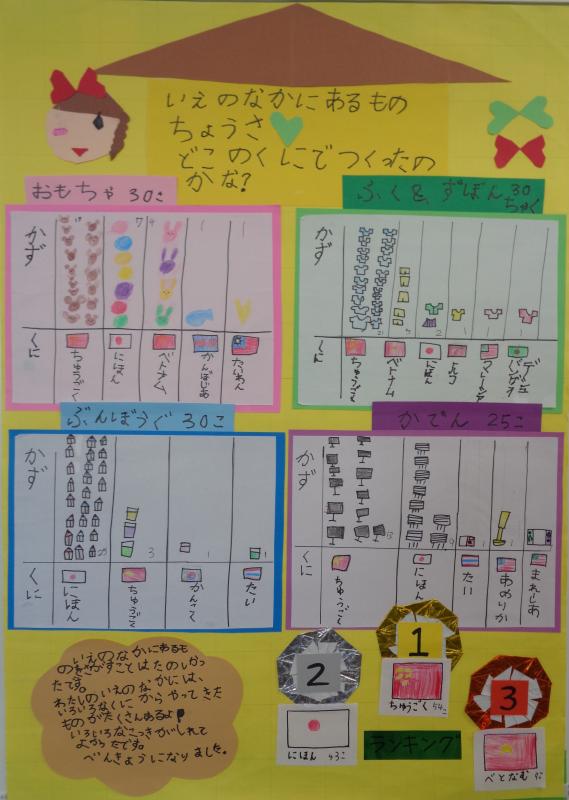 いえのなかにあるもの
ちょうさ
どこのくにでつくったの
かな?
おもちゃ 30こ
かず
7
4
1
1
くに
ちゅうごく
にほん
べトナム
かんぼじあ
たいわん
ふく& ずぼん 30
ちゃく
かず
2
1
1
くに
ちゅうごく
ベトナム
にほん
トルコ
ぶんぼうぐ 30こ
かず
25
3
1
1
くに
にほん
ちゅうごく
かんこく
たい
かでん 25こ
かず
13
9
1
1
くに
ちゅうごく
にほん
たい
あめりか
まれーしあ
いえのなかにあるも
のをさがすことはたのしかっ
たです。
わたしのいえのなかには、
いろいろなくにからやってきた
ものがたくさんあるよ
いろいろなこっきがしれて
よかったです。
べんきょうになりました。
2
にほん 43こ
1
ちゅうごく 54こ
3
べとなむ 9こ
ランキング